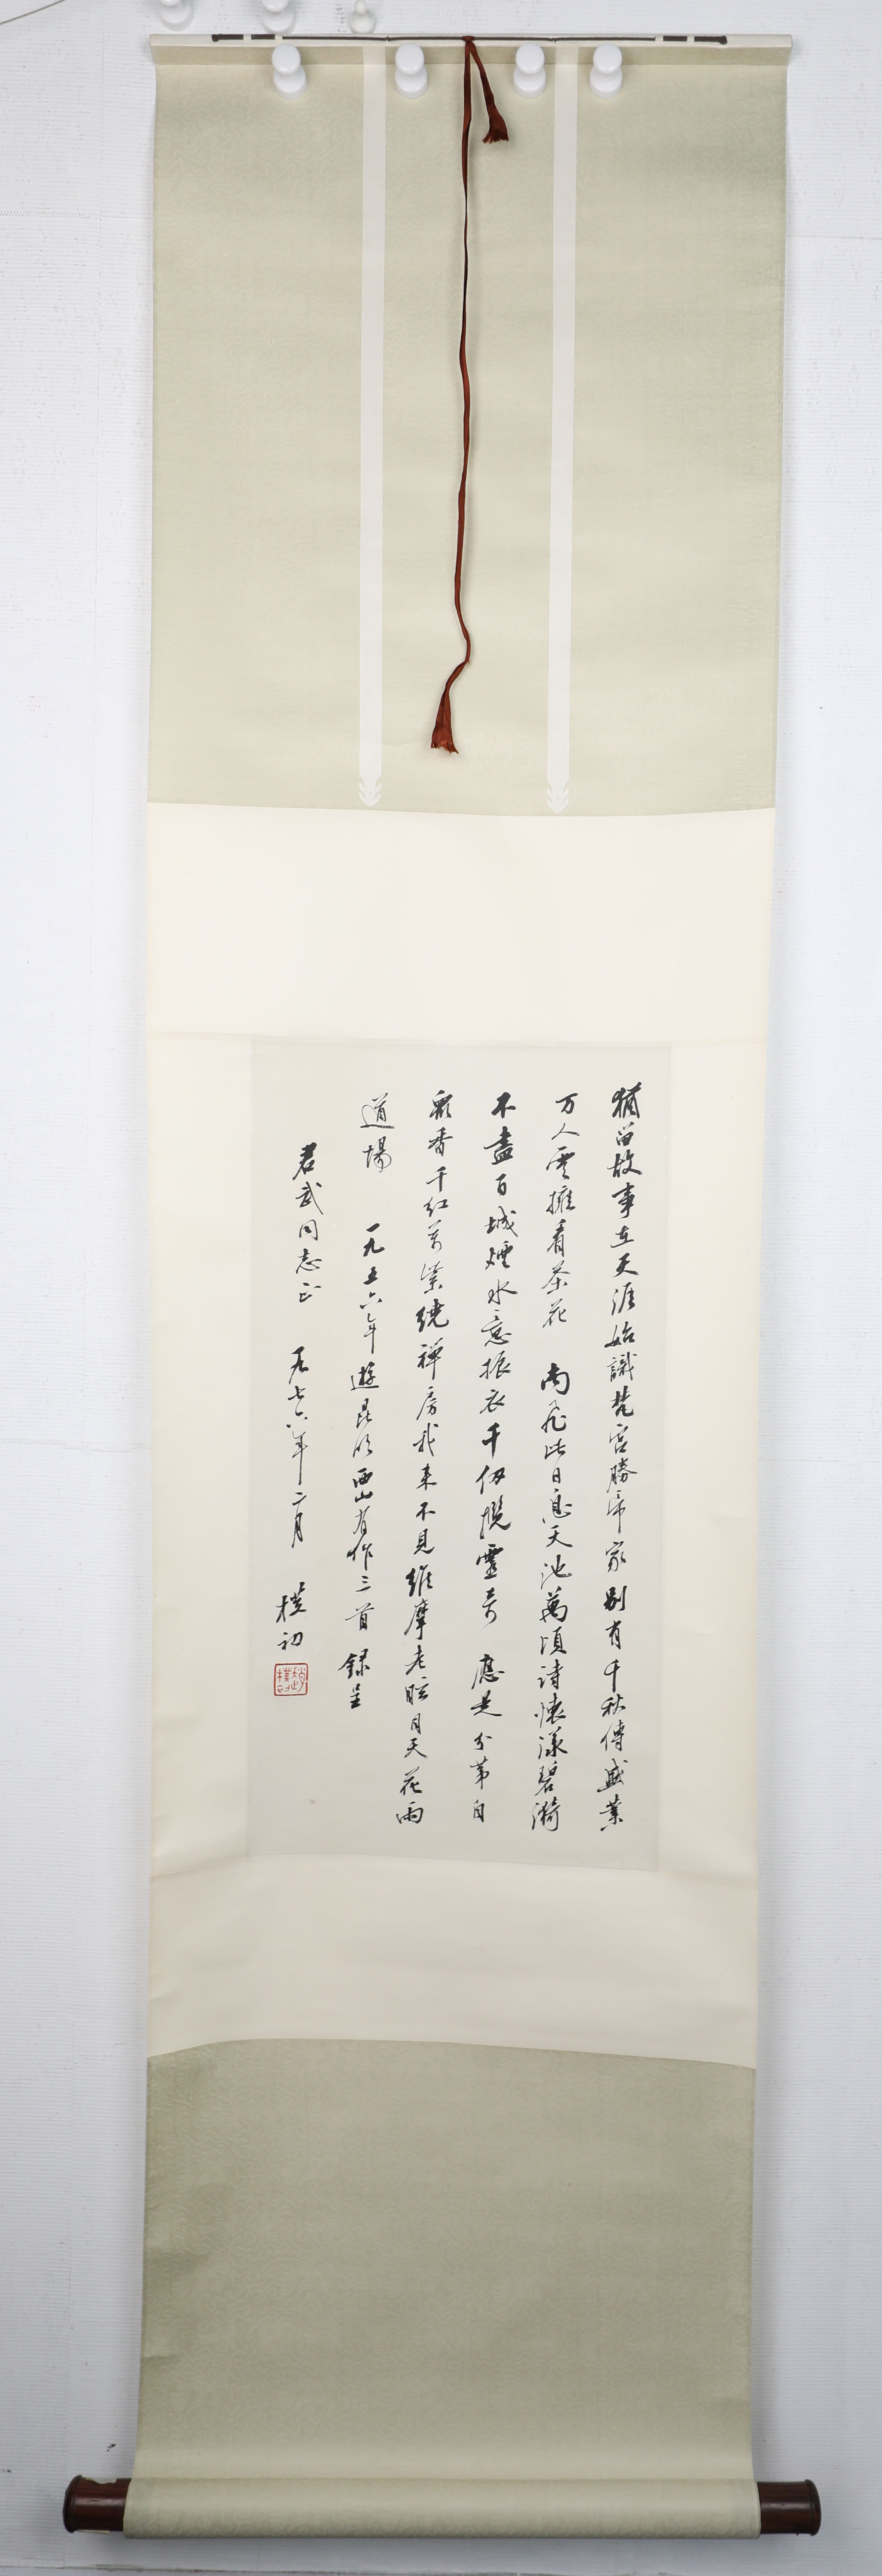 猶留故事在天涯始識梵宮勝帝家別有千秋傳盛業
万人雲擁看茶花　南飛此日息天池萬頃詩懷漾碧漪
不盡百城煙水意振衣千仞攬靈奇　應是分茅自
眾香千紅万紫繞禪房我來不見維摩老眩目天花雨
道場　一九五六年遊昆明西山有作三首錄呈
君武同志正　一九七六年二月　樸初
趙樸初